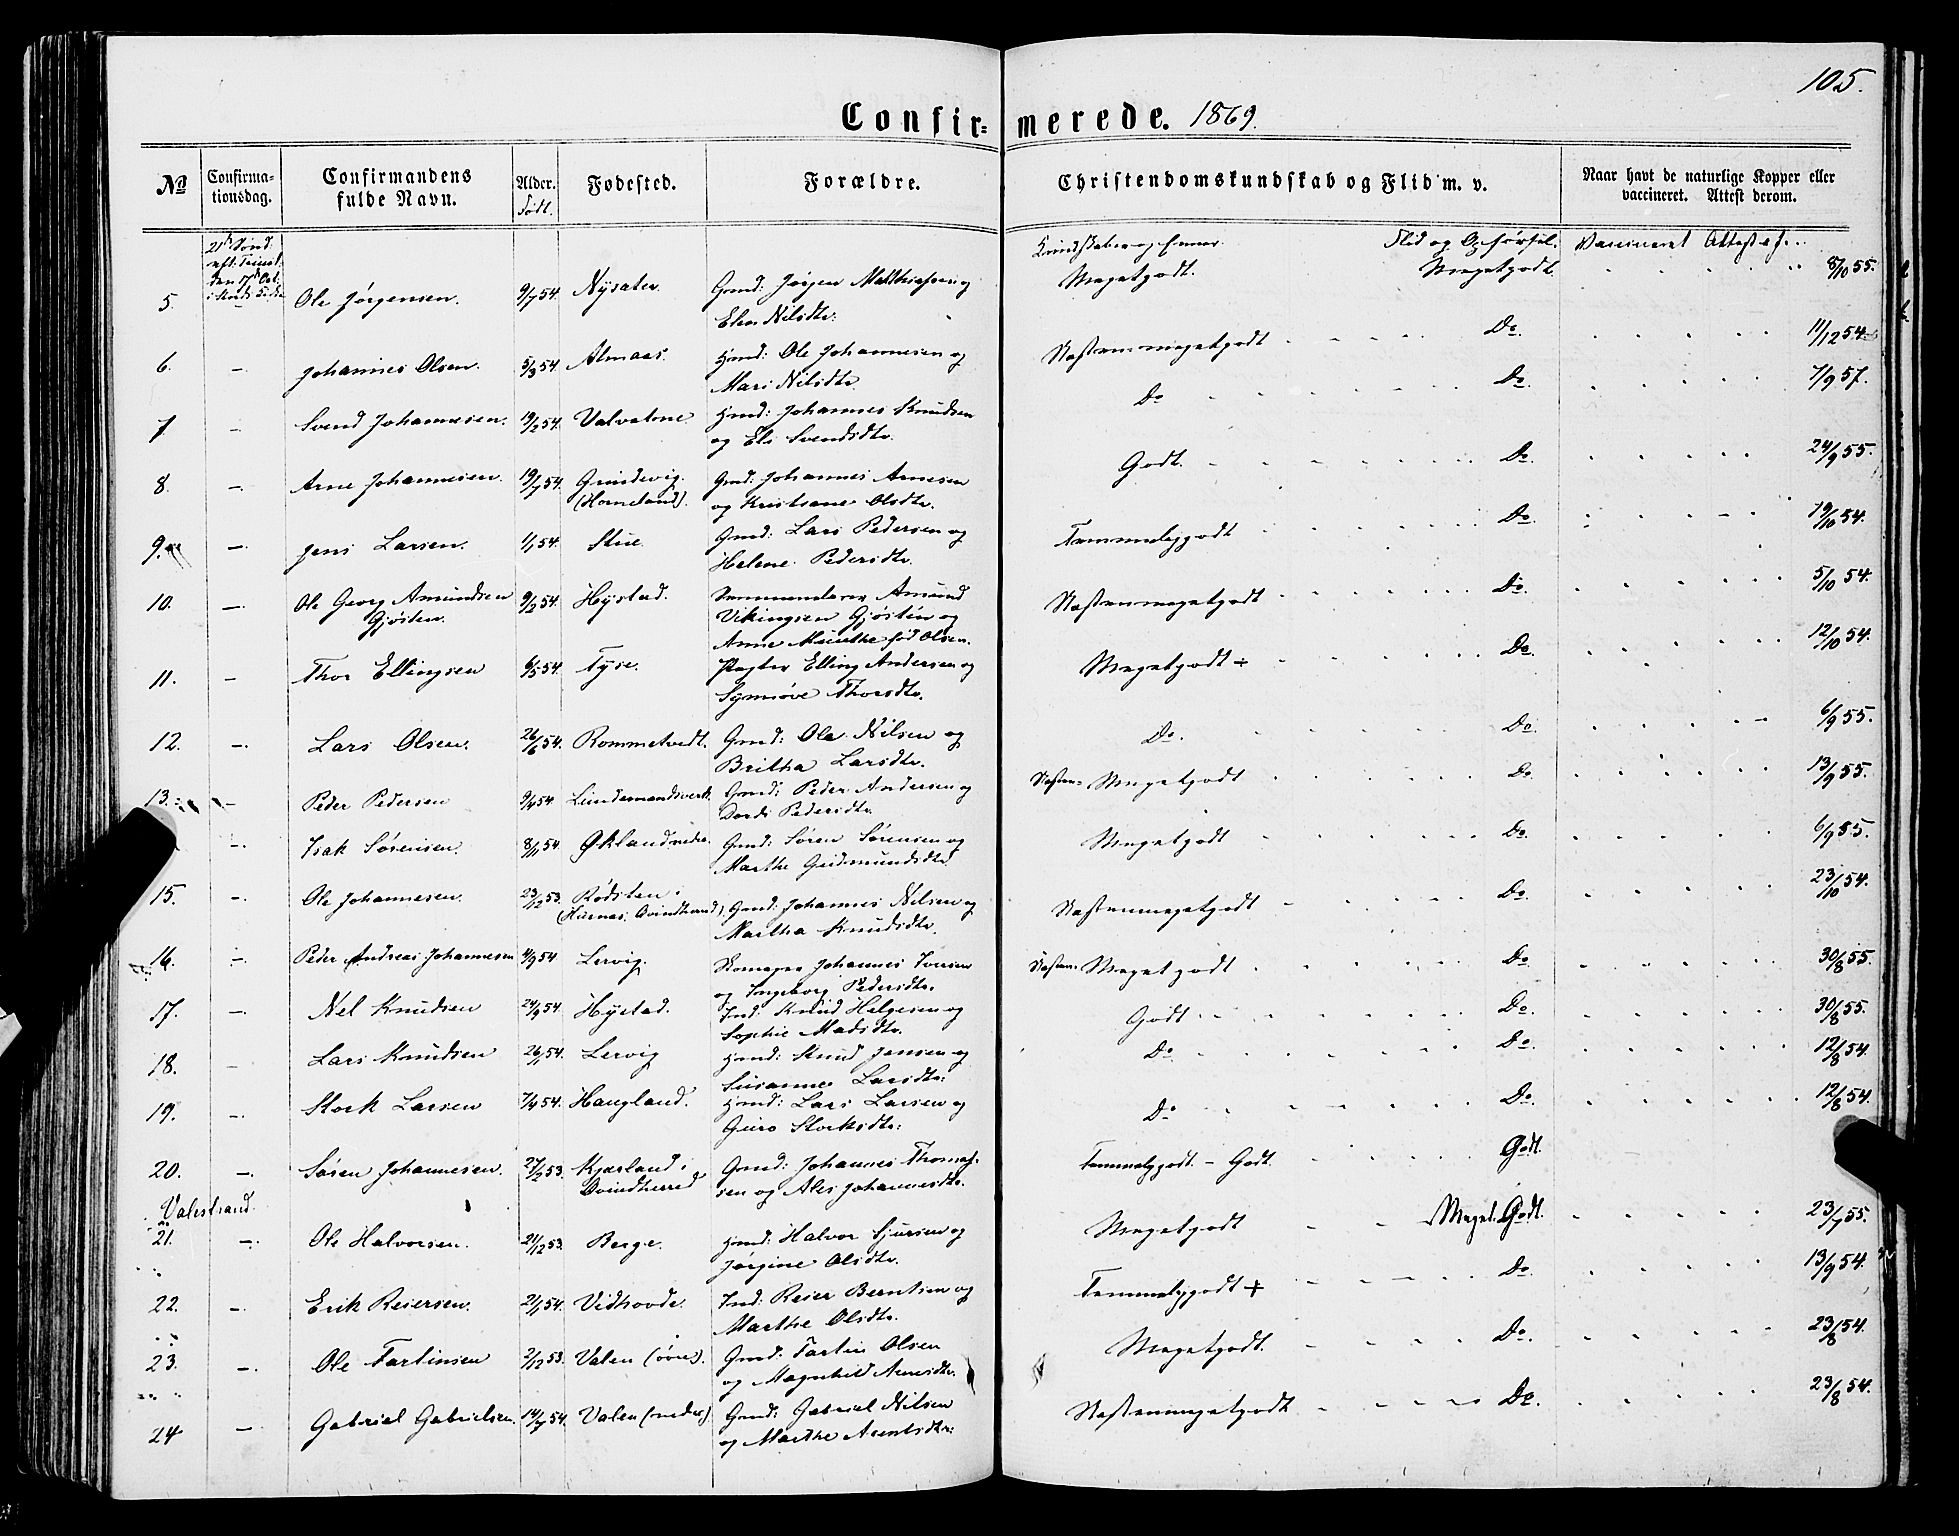 105.
Confir= merede. 1869.
No Confirma-tionsdag. Confirmandens fulde Navn. Alder. Født. Fødested. Forældre. Christendomskundskab og Flid m. v. Naar havt de naturlige Kopper eller vaccineret. Attest derom.
21de Sønd. eft. Trinit. den 17de Oct. Kundskaber og Evner. Flid og Opførsel. Vaccineret Attest af
5. Ole Jørgensen. 9/7 54. Nysæter. Gmd: Jørgen Matthiesen og Meget godt. Meget godt. 8/10 55.
Elen Nilsdtr.
6. – Johannes Olsen. 5/3 54. Almaas. Hmd: Ole Johannesen og Næsten meget godt Do. 11/12 54.
Mari Nilsdtr.
7. – Svend Johannesen. 19/2 54. Valvatne. Hmd: Johannes Knudsen Do Do 7/9 57.
og Eli Svendsdtr.
8. – Arne Johannesen. 19/7 54. Grindevig. Gmd: Johannes Arnesen Godt. Do 24/9 55.
(Horneland). og Kristiane Olsdtr.
9. – Jens Larsen. 1/1 54. Stue. Gmd: Lars Pedersen og Temmelig godt Do 19/10 54.
Helene Pedersdtr.
10. – Ole Georg Amundsen 9/2 54. Hystad. Amund Næsten meget godt Do 5/10 54.
Gjøsten. Vikingsen Gjøsten og
Anne Munthe fød Olsen.
11. – Thor Ellingsen 6/5 54. Tyse. Pagter Elling Andersen og Meget godt + Do. 12/10 54.
Synnøve Thorsdtr.
12. – Lars Olsen. 26/6 54. Rommetvedt. Gmd: Ole Nilsen og Do. Do 6/9 55.
Britha Larsdtr.
13. – Peder Pedersen 9/4 54 Lundemandsverk. Gmd: Peder Andersen og Næsten Meget godt Do 13/9 55.
Dordi Pedersdtr.
– Isak Sørensen. 8/11 54. Økland nedre. Gmd: Søren Sørensen og Meget godt Do. 6/9 85.
Marthe Gudmundsdtr.
15. – Ole Johannesen. 23/12 53. Rødsten i Gmd: Johannes Nilsen og Næsten meget godt Do 23/10 54.
(Husnes, Qvindherred) Martha Knudsdtr.
16. – Peder Andreas Johannesen 4/9 54 Lervig. Skomager Johannes Iversen Næsten Meget godt Do 30/8 55.
og Ingeborg Pedersdtr.
17. – Nel Knudsen 24/9 54. Hystad. Ind: Knud Helgesen og Godt Do. 30/8 55.
Sophie Madsdtr.
18. – Lars Knudsen 26/1 54. Lervig Hmd: Knud Jansen og Do Do. 12/8 54.
Susanne Larsdtr:
19. – Stork Larsen 7/4 54. Haugland. Hmd: Lars Larsen og Do Do. 12/8 54.
Guro Storksdtr:
20. – Søren Johannesen. 27/2 53. Kjærland i Gmd: Johannes Thomas- Temmelig godt. – Godt. Godt.
Qvindherred sen og Ales Johannesdtr.
Valestrand.
21. – Ole Halvorsen. 21/12 53. Berge. Hmd: Halvor Sjursen og Meget godt Meget Godt. 23/7 55.
Jørgine Olsdtr.
22. – Erik Reiersen. 21/1 54. Vidhovde. Ind: Reier Berntsen og Temmelig godt + Do 13/9 54.
Marthe Olsdtr.
23. – Ole Fartinsen 2/12 53. Valen (øvre). Gmd: Fartin Olsen Meget godt. Do. 23/8 54.
og Magnhild Arnesdtr.
24 – Gabriel Gabrielsen. 14/7 54. Valen (nedre). Gmd: Gabriel Nilsen Næsten meget godt Do. 23/8 54.
og Marthe Arentsdtr: